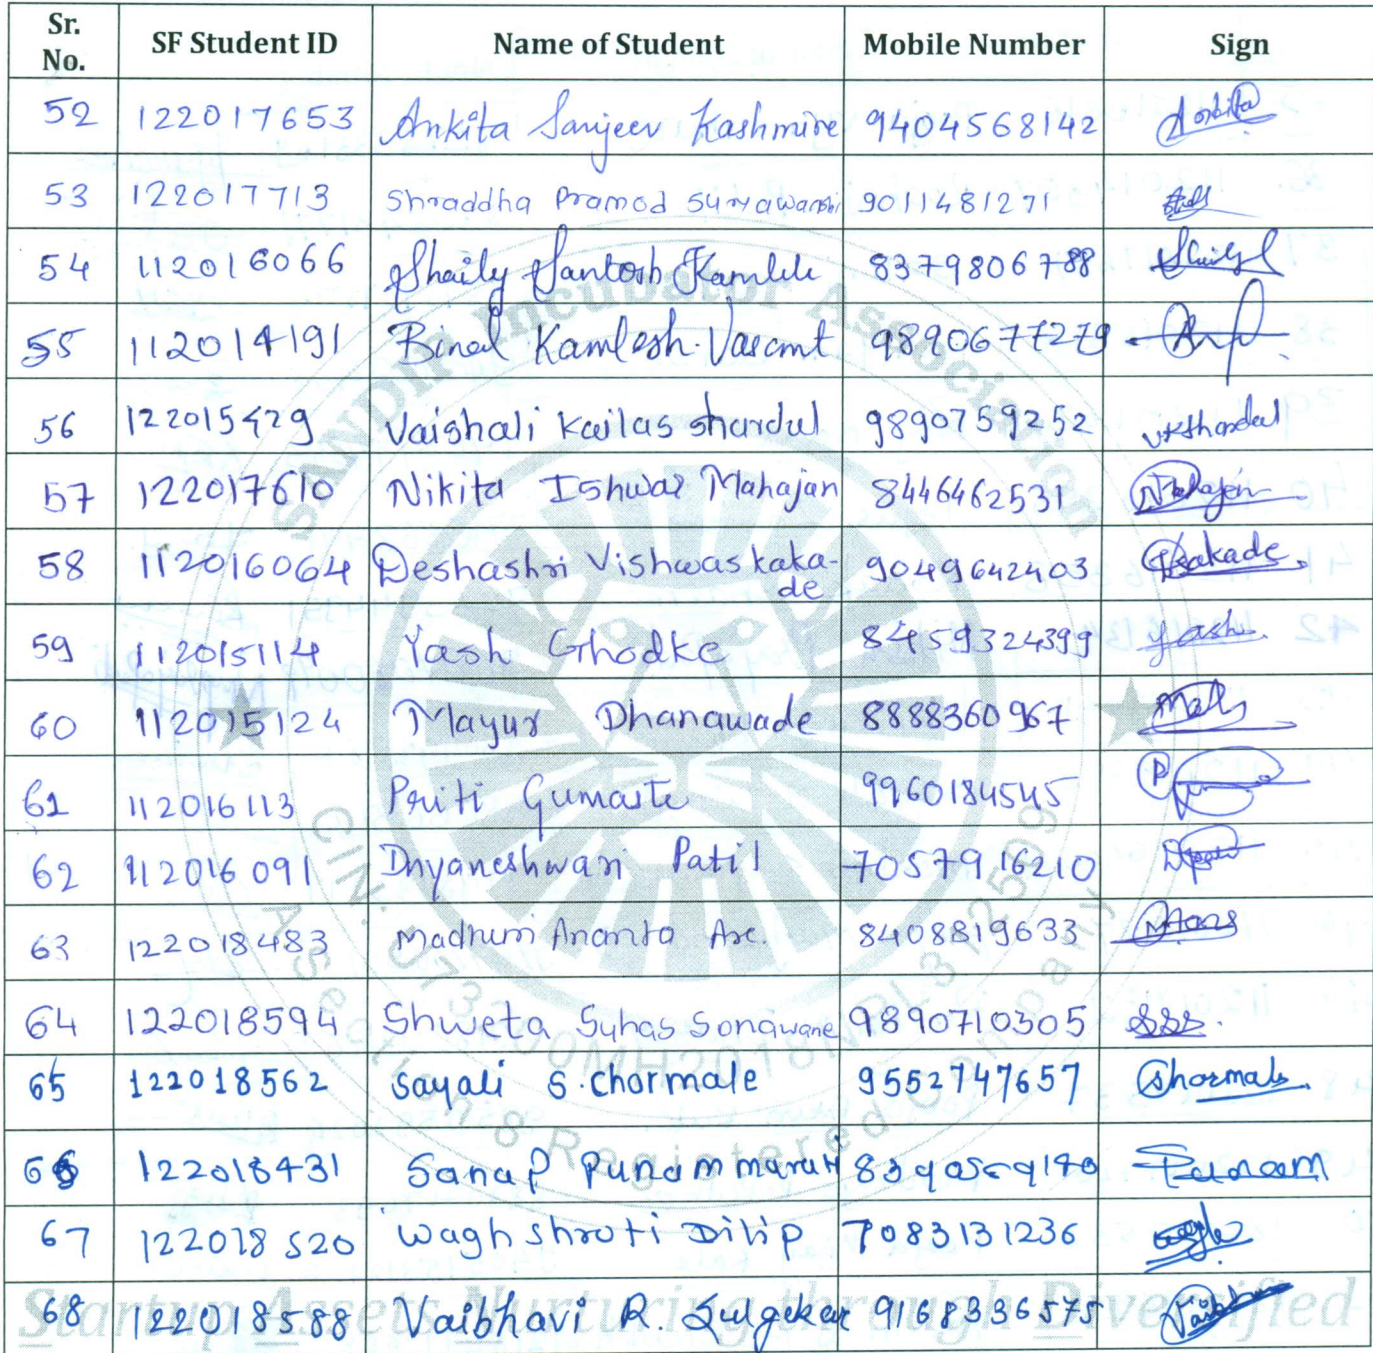 Sr. No. SF Student ID Name of Student Mobile Number Sign
52 122017653 Ankita Sanjeev Kashmire 9404568142 Ankita
53 122017713 Shraddha Pramod Suryawanshi 9011481271
54 112016066 Shaily Santosh Kamble 8379806788
55 112014191 Binal Kamlesh Vasant 9890677279
56 122015429 Vaishali Kailas shardul 9890759252 vkshardul
57 122017610 Nikita Ishwar Mahajan 8446462531 NMahajan
58 112016064 Deshashri Vishwas kaka-
de 9049642403 Dkakade
59 112015114 Yash Ghodke 8459324399 yash
60 112015124 Mayur Dhanawade 8888360967
61 112016113 Priti Gumaste 9960184545
62 112016091 Dnyaneshwari Patil 7057916210
63 122018483 Madhuri Ananta Are. 8408819633
64 122018594 Shweta Suhas Sonawane 9890710305 SSS.
65 122018562 Sayali S. chormale 9552747657 Chormale
66 122018431 Sanap Punam maruti Punam
67 122018520 Wagh shruti Dilip 7083131236
68 122018588 Vaibhavi R. 9168336575
SANDIP Incubator Association
Section 8 Registered Company
Startup Assets Nurturing through Diversified